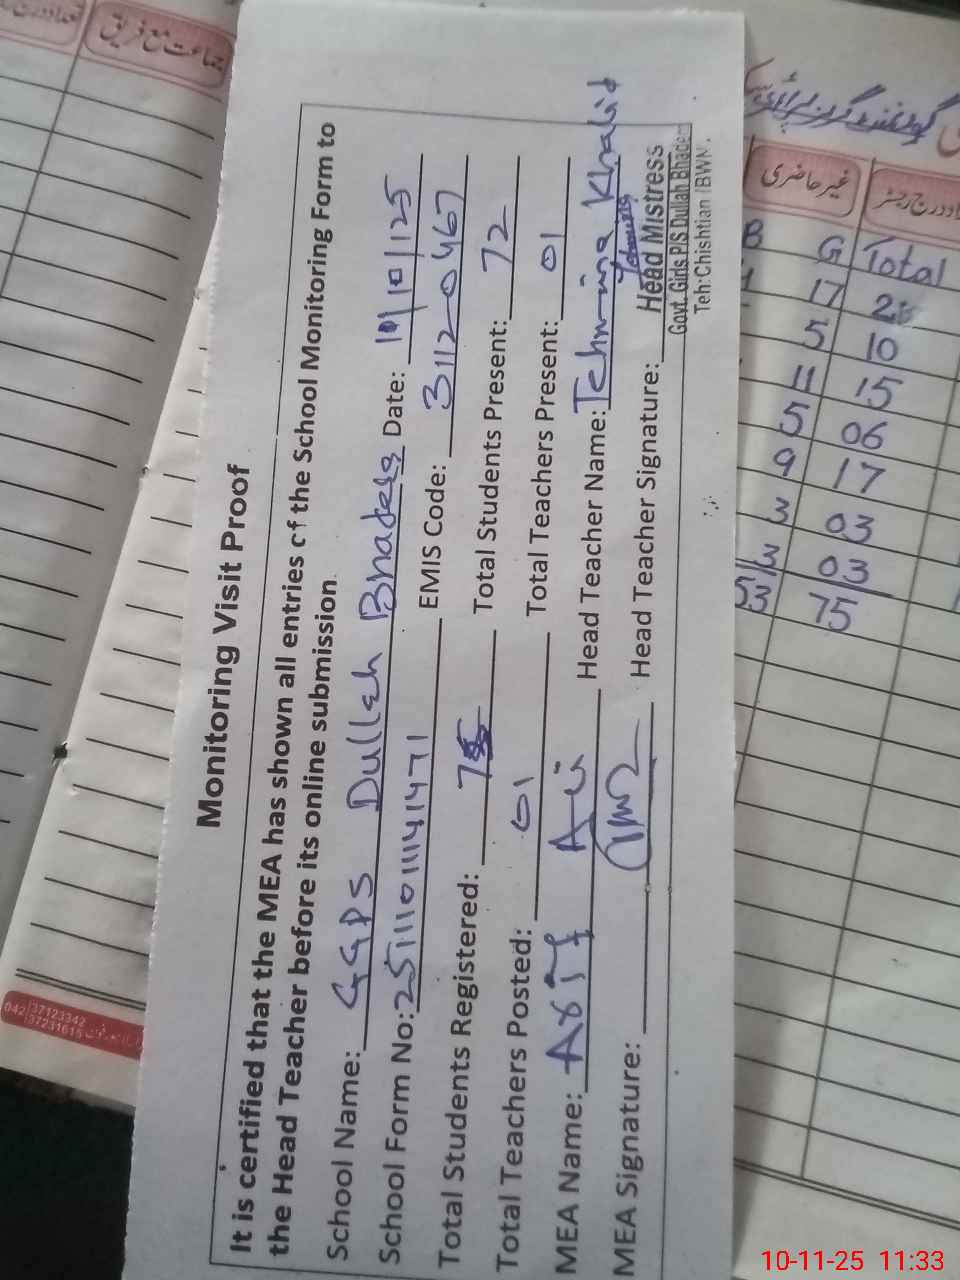 Monitoring Visit Proof
It is certified that the MEA has shown all entries of the School Monitoring Form to
the Head Teacher before its online submission.
School Name: GGPS Dullah Bhadera Date: 10/10/125
School Form No: 251110111141471 EMIS Code: 31120467
Total Students Registered: 75 Total Students Present: 72
Total Teachers Posted: 01 Total Teachers Present: 01
MEA Name: Asif Ali Head Teacher Name: Tehmina Khalid
MEA Signature: Head Teacher Signature: Tehmina
Head Mistress
Govt. Girls P/S Dullah Bhadera
Teh: Chishtian (BWN).
جماعت مع فریق
غیر حاضری
B G Total
17
5 10
11 15
5 06
9 17
3 03
3 03
53 75
042 37123342
37231615
10-11-25 11:33